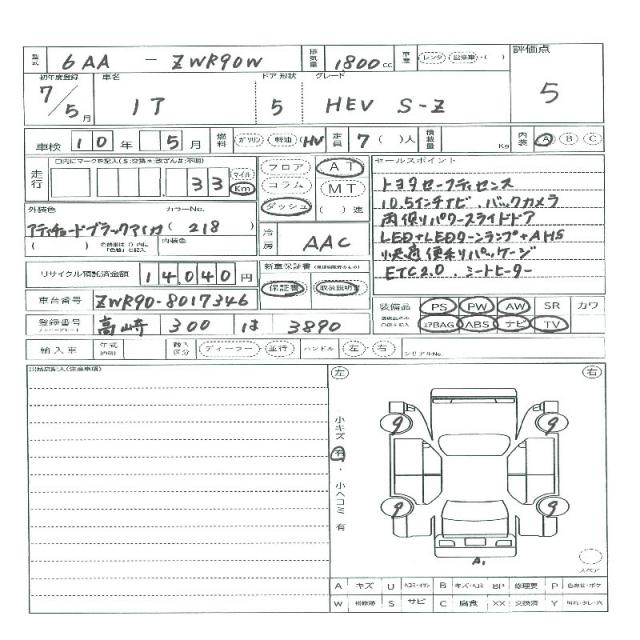 型式 6AA - ZWR90W 排気量 1800cc 車歴 レンタ・自家用・( ) 評価点
初年度登録 車名 ドア形状 グレード
7/5月 ノア 5 HEV S-Z 5
車検 10年 5月 燃料 ガソリン・軽油・(HV) 定員 7( )人 積載量 Kg 内装 A B C
走行 33 マイル Km フロア AT セールスポイント
コラム MT トヨタセーフティセンス
ダッシュ ( )速 10.5インチナビ、バックカメラ
外装色 カラーNo. 両側パワースライドドア
アティチュードブラックマイカ( 218 ) 冷房 AAC LED+LEDターンランプ+AHS
( ) 内装色 快適便利パッケージ
リサイクル預託済金額 14,040円 新車保証書 ETC2.0、シートヒーター
保証書 取扱説明書
車台番号 ZWR90-8017346 装備品 PS PW AW SR カワ
登録番号 高崎 300 は 3890 エアBAG ABS ナビ TV
輸入車 年式 輸入区分 ディーラー・並行 ハンドル 左・右 シリアルNo.
左 右
小キズ 有・小ヘコミ 有
9 9
9 9
A1
スペア
A キズ U B キズ・ヘコミ BP 修理要 P 色あせ・ボケ
W 補修跡 S サビ C 腐食 XX 交換済 Y 切れ・ワレ・穴